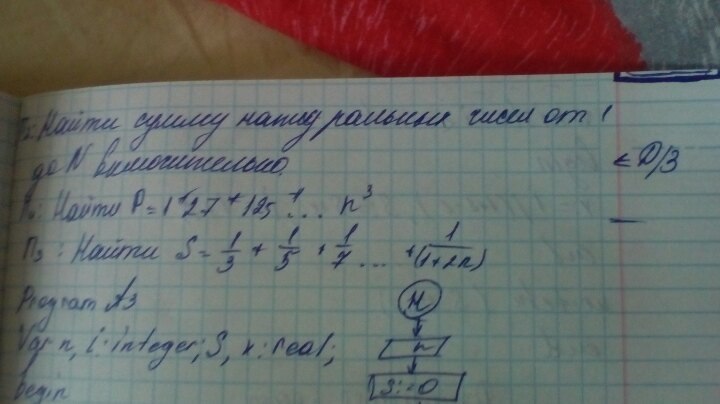 Найти сумму натуральных чисел от 1
до N включительно.
← Д/З
Найти P = 1 + 27 + 125 + ... n³
П₃: Найти S = 1/3 + 1/5 + 1/7 ... + 1/(1+2n)
Program A3
Н
Var n, i: integer; S, x: real;
n
begin
S:=0